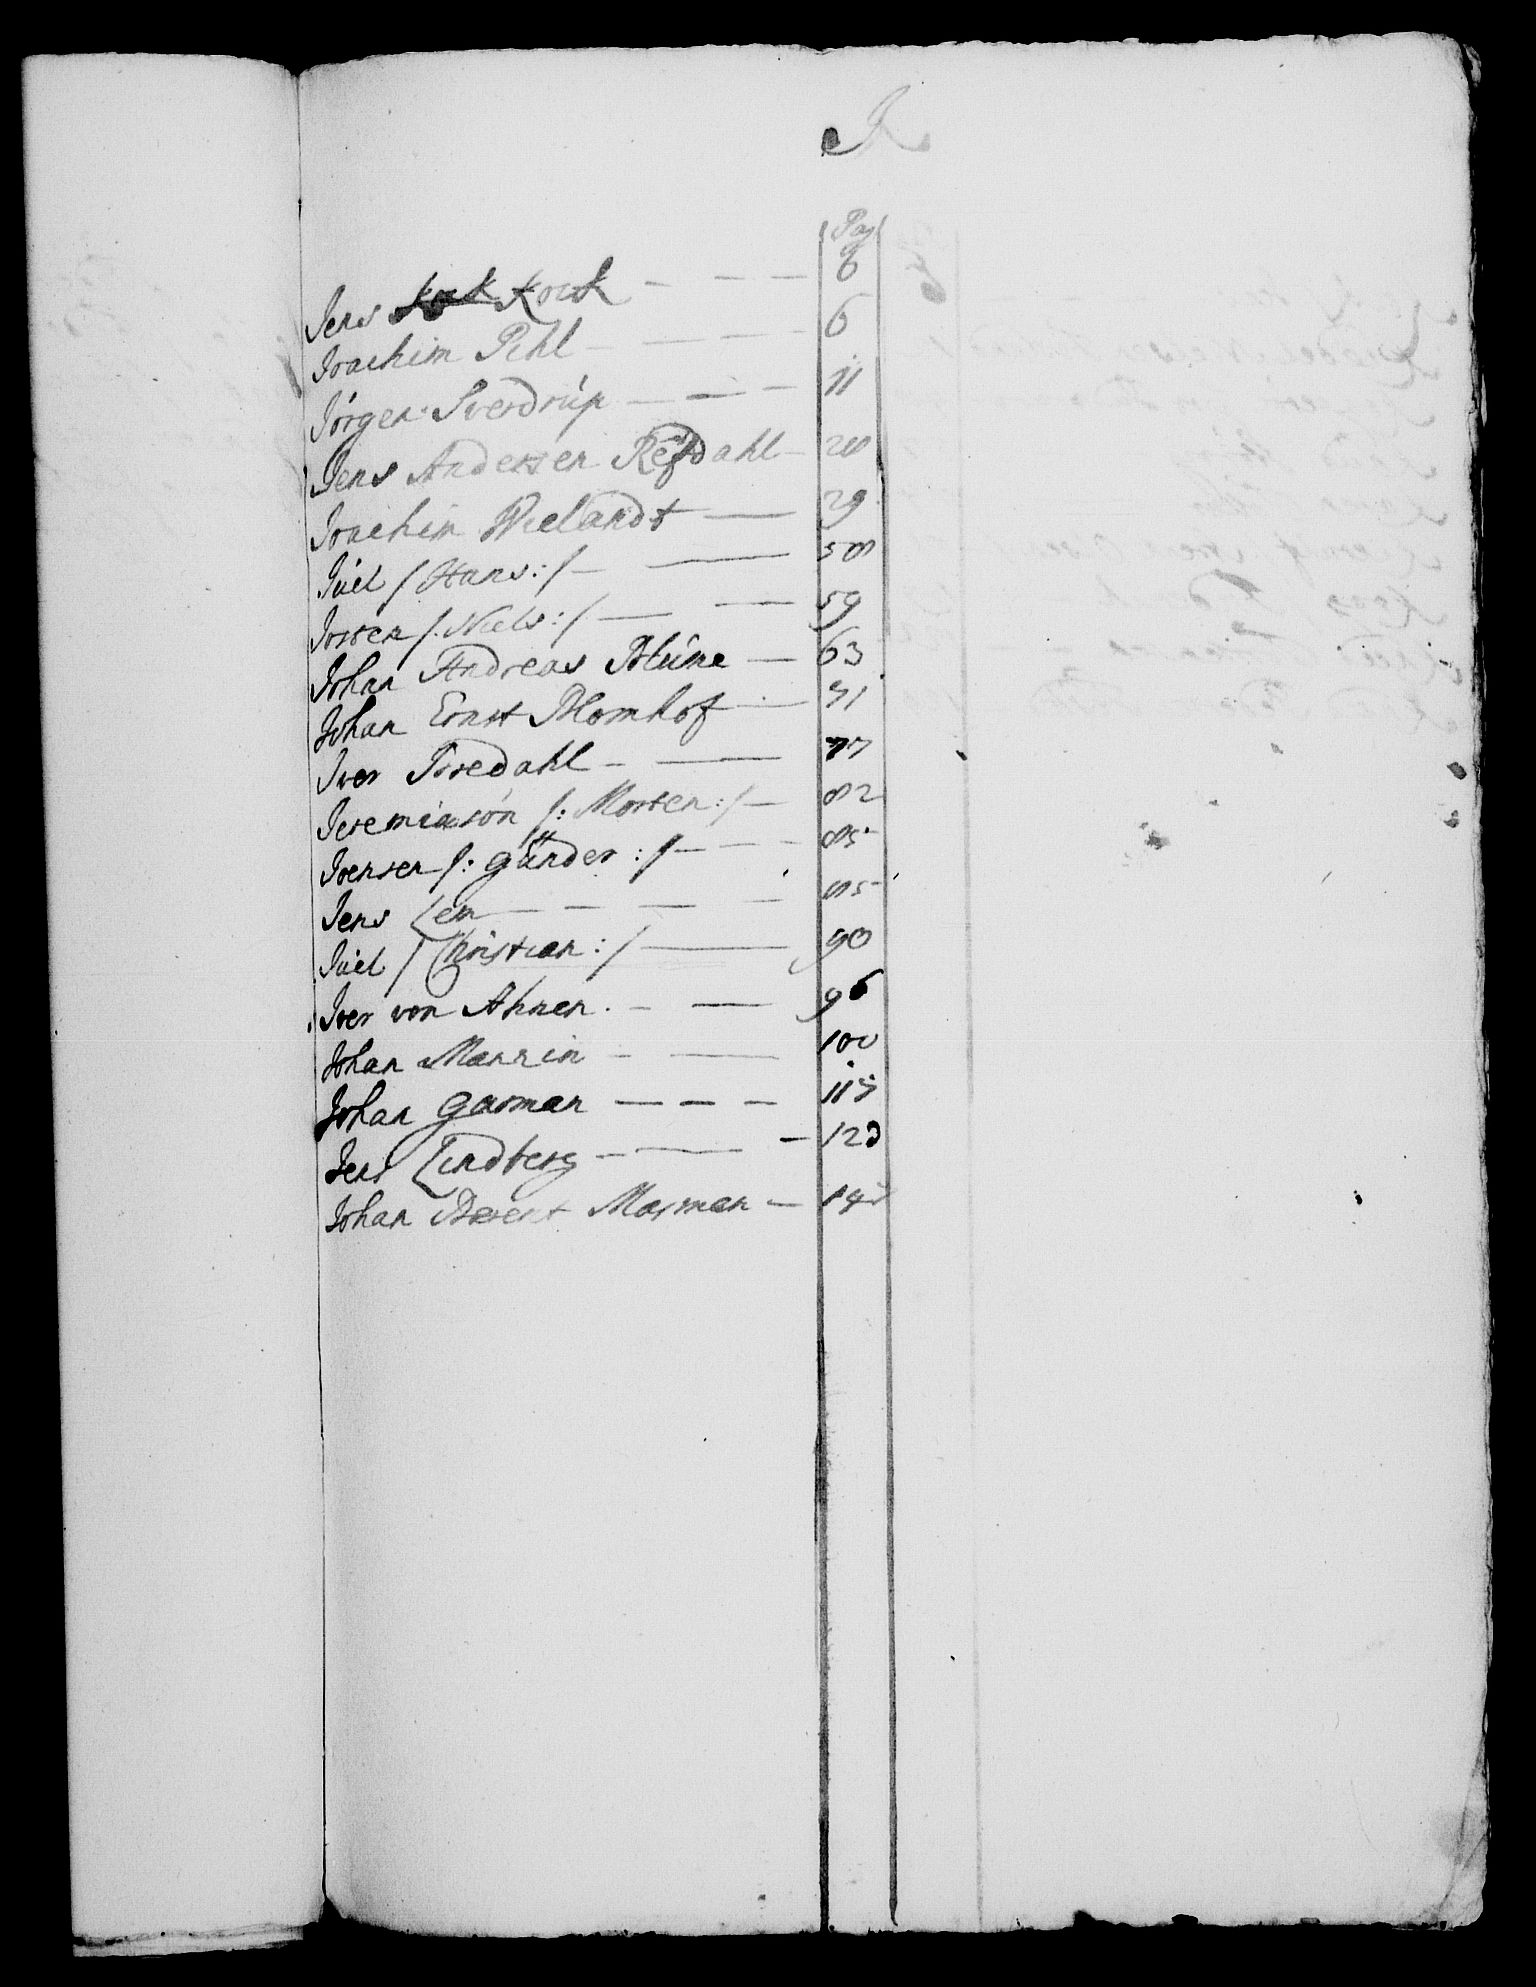 J
Pag
Jens Kock — — — 6
Joachim Pihl — — — 6
Jørgen Sverdrúp — — — 11
Jens Andersen Refsdahl — 20
Joachim Wielandt — 29
Júel /: Hans :/ — — 58
/: Niels :/ — — 59
Johan Andreas Blúme — 63
Johan Ernst Blomhof — 71
Iver — — 77
Jeremiasøn /: Morten :/ — 82
Iversen /: Günder :/ — — — 85
Jens Lem — — — — 85
Júel /: Christian :/ — 90
Iver von Ahnen — — 96
Johan — — 100
Johan Garman — — — 117
Jens Lindberg — — — 123
Johan Berent — 14